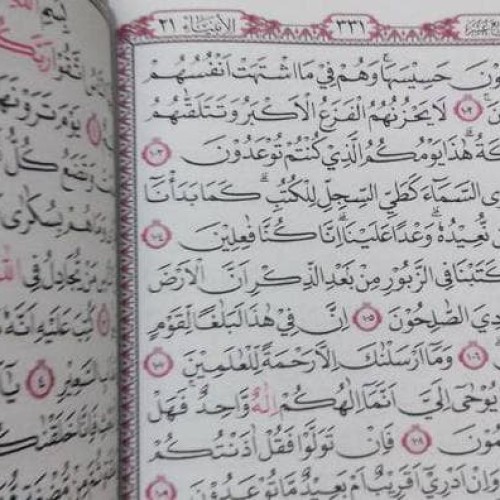 الأنبياء ٢١ ٣٣١
حَسِيسَهَا وَهُمْ فِي مَا اشْتَهَتْ أَنْفُسُهُمْ
١٠٢ لَا يَحْزُنُهُمُ الْفَزَعُ الْأَكْبَرُ وَتَتَلَقّٰهُمُ
هٰذَا يَوْمُكُمُ الَّذِي كُنْتُمْ تُوعَدُونَ ١٠٣
السَّمَاءَ كَطَيِّ السِّجِلِّ لِلْكُتُبِ كَمَا بَدَأْنَا
نُعِيدُهُ وَعْدًا عَلَيْنَا إِنَّا كُنَّا فَاعِلِينَ ١٠٤
كَتَبْنَا فِي الزَّبُورِ مِنْ بَعْدِ الذِّكْرِ أَنَّ الْأَرْضَ
الصَّالِحُونَ ١٠٥ إِنَّ فِي هٰذَا لَبَلَاغًا لِقَوْمٍ
١٠٦ وَمَا أَرْسَلْنَاكَ إِلَّا رَحْمَةً لِلْعَالَمِينَ ١٠٧
يُوحَى إِلَيَّ أَنَّمَا إِلٰهُكُمْ إِلٰهٌ وَاحِدٌ فَهَلْ
١٠٨ فَإِنْ تَوَلَّوْا فَقُلْ اٰذَنْتُكُمْ
وَإِنْ أَدْرِي أَقَرِيبٌ أَمْ بَعِيدٌ مَا تُوعَدُونَ ١٠٩
بِسْمِ
اتَّقُوا رَبَّكُمْ
١ يَوْمَ تَرَوْنَهَا
وَتَضَعُ كُلُّ
هُمْ بِسُكَارَى
مَنْ يُجَادِلُ فِي اللَّهِ
كُتِبَ عَلَيْهِ أَنَّهُ
السَّعِيرِ ٤ يَا
فَإِنَّا خَلَقْنَاكُمْ
مِنْ مُضْغَةٍ